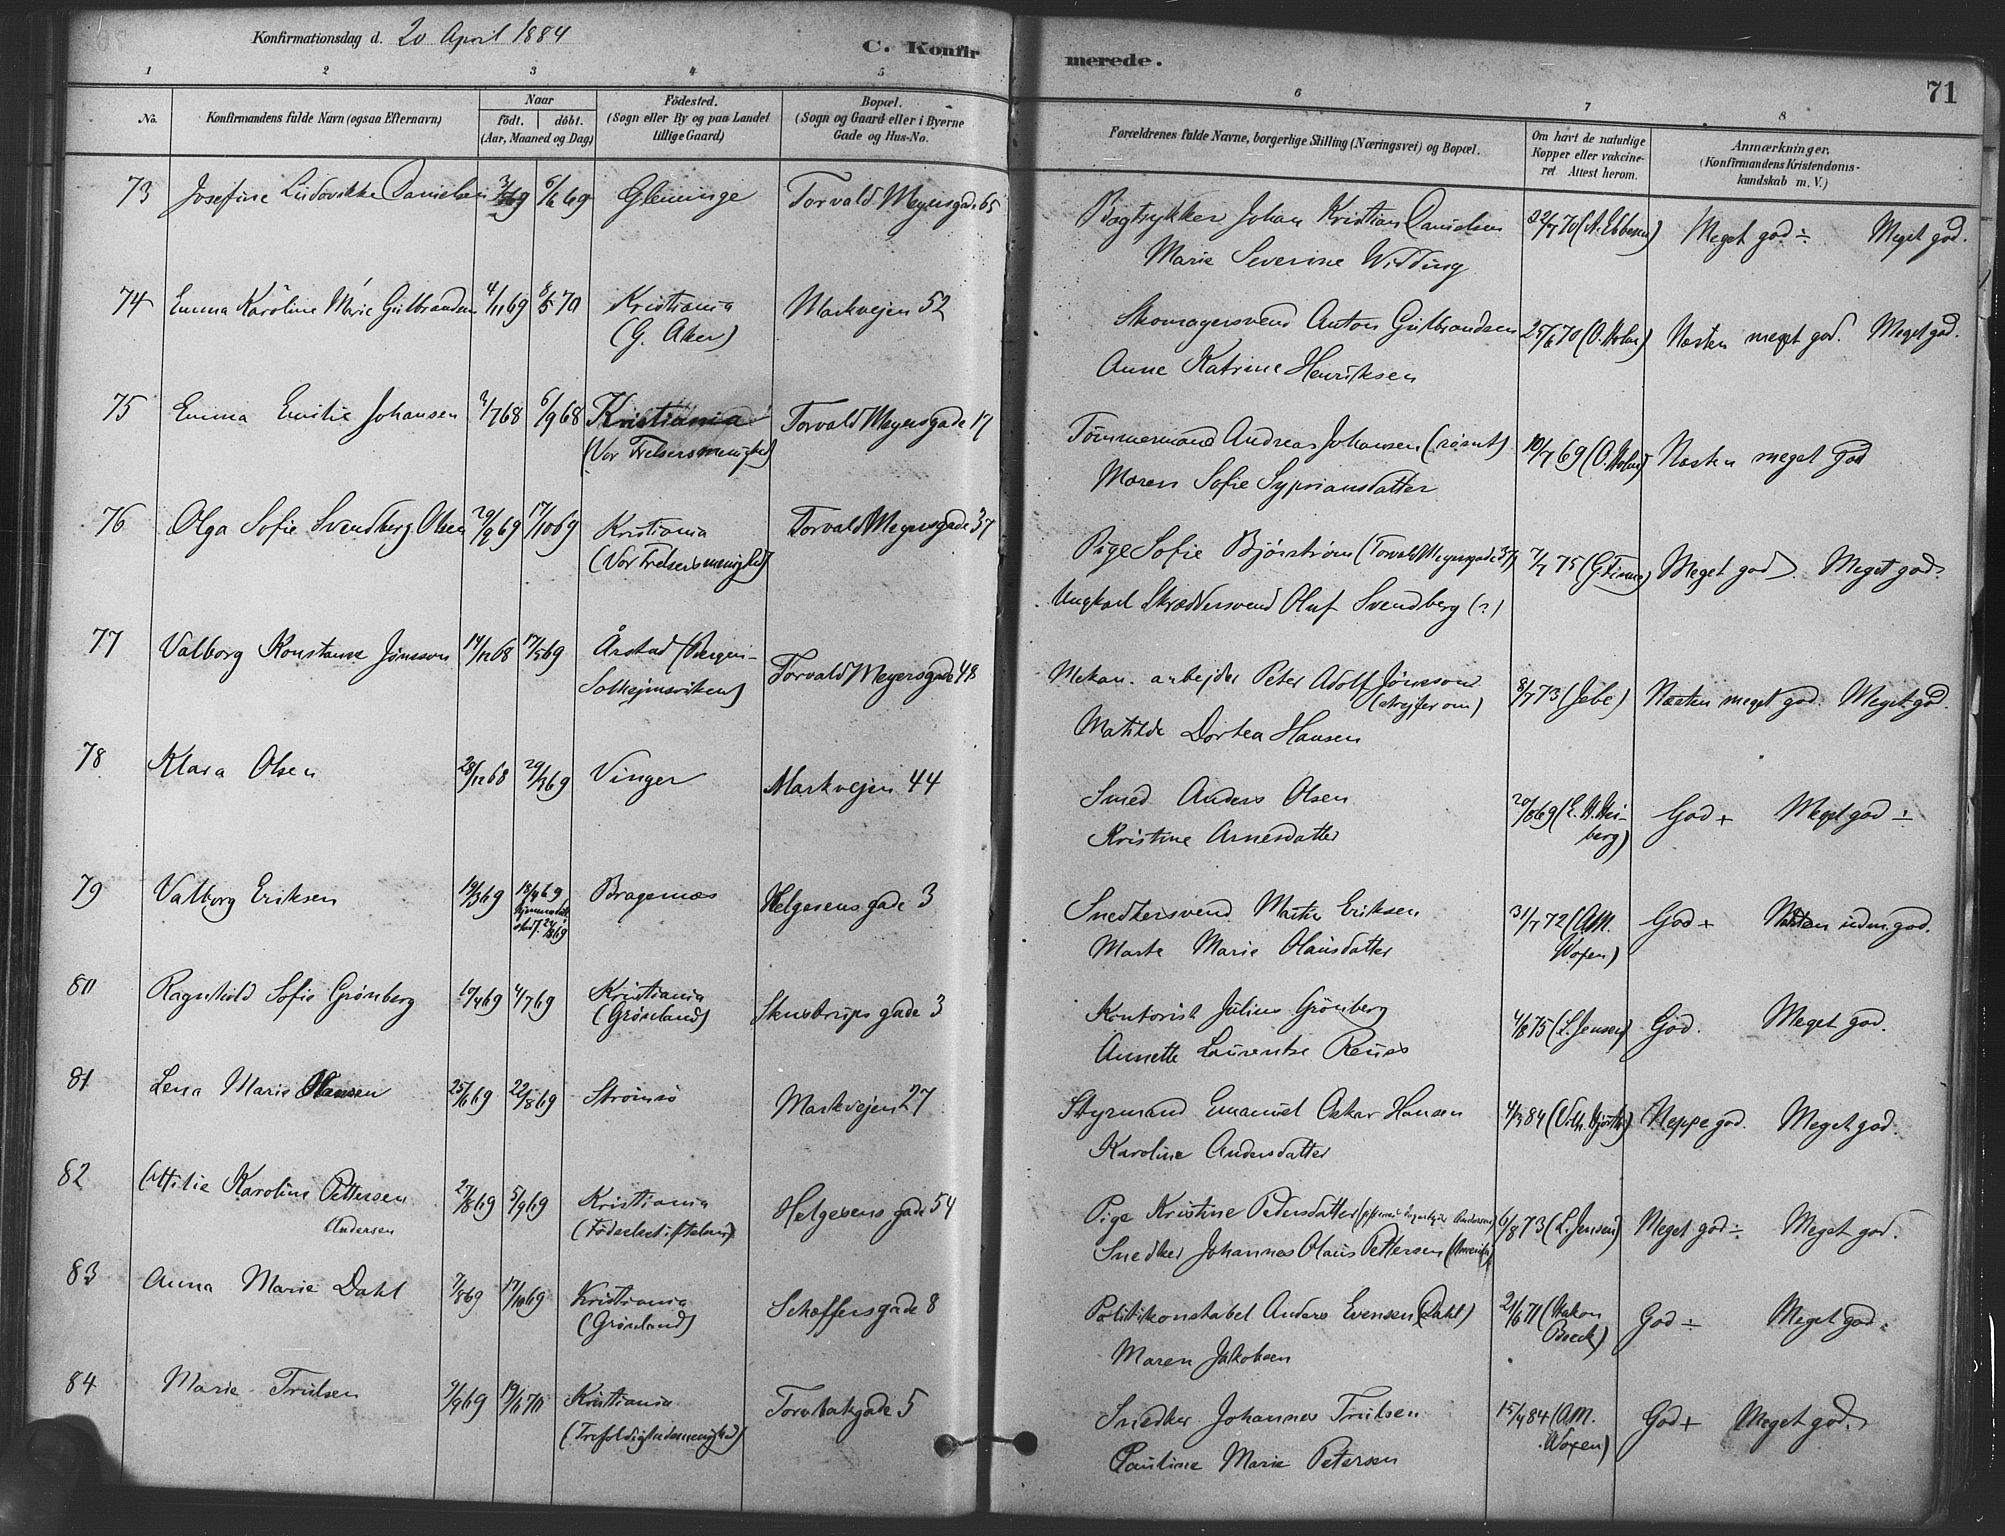 Konfirmationsdag d. 20 April 1884
C. Konfirmerede.
71
1 2 3 4 5 6 7 8
No.
Konfirmandens fulde Navn (ogsaa Efternavn)
Naar
födt. döbt.
(Aar, Maaned og Dag)
Födested.
(Sogn eller By og paa Landet
tillige Gaard)
Bopæl.
(Sogn og Gaard eller i Byerne
Gade og Hus-No.
Forældrenes fulde Navne, borgerlige Stilling (Næringsvei) og Bopæl.
Om havt de naturlige
Kopper eller vakcine-
ret Attest herom.
Anmærkninger.
(Konfirmandens Kristendoms-
kundskab m. V.)
73 Josefine Ludovikke Danielsen 6/6 69 Glemminge Torvald Meyersgade 65 Bogtrykker Johan Kristian Danielsen 22/7 70 (A. Ebbesen) Meget god ÷ Meget god.
Marie Severine Widding
74 Emma Karoline Marie Gulbrandsen 4/11 69 8/5 70 Kristiania Markvejen 52 Skomagersvend Anton Gulbrandsen 25/6 70 (O. Holm) Næsten meget god. Meget god.
(G. Aker) Anne Katrine Henriksen
75 Emma Emilie Johansen 2/7 68 6/9 68 Kristiania Torvald Meyersgade 17 Tömmermand Andreas Johansen (rømt) 10/7 69 (O. Holm) Næsten meget god
(Vor Frelsers menighed) Maren Sofie Sypriansdatter
76 Olga Sofie Svendberg Olsen 20/9 69 17/10 69 Kristiania Torvald Meyersgade 37 Pige Sofie Bjørstrøm (Torvald Meyersgade 37) 7/7 75 Meget god. Meget god.
(Vor Frelsers menighed) Ungkarl Skræddersvend Oluf Svendberg (?)
77 Valborg Konstanse Jönsson 14/12 68 17/5 69 Årstad (Bergen- Torvald Meyersgade 48 Mekan. arbejder Peter Adolf Jönsson 8/7 73 (Jebe) Næsten meget god. Meget god.
Solhejmsviken) (strejfer om)
Matilde Dortea Hansen
78 Klara Olsen 28/12 68 29/3 69 Vinger Markvejen 44 Smed Anders Olsen 20/8 69 God + Meget god ÷
Kristine Arnesdatter
79 Valborg Eriksen 19/3 69 18/4 69 Bragernæs Helgesens gade 3 Snedkersvend Martin Eriksen 31/7 72 (A.M. God + Næsten udm. god.
Marte Marie Olausdatter Woxen)
80 Ragnhild Sofie Grönberg 10/4 69 4/7 69 Kristiania Skenstrups gade 3 Kontorist Julius Grönberg 4/8 75 (L. Jensen) God. Meget god.
(Grönland) Annette Laurentse Reuss
81 Lena Marie Hansen 25/6 69 22/8 69 Strömsö Markvejen 27 Styrmand Emanuel Oskar Hansen 4/3 84 Neppe god. Meget god.
Karoline Andersdatter
82 Ottilie Karoline Pettersen 27/8 69 5/9 69 Kristiania Helgesens gade 54 Pige Kristine Pedersdatter 6/8 73 (L. Jensen) Meget god ÷ Meget god.
Andersen (Födselsstiftelsen) Snedker Johannes Olaus Pettersen (Amerika)
83 Anna Marie Dahl 7/8 69 17/10 69 Kristiania Schæffersgade 8 Politikonstabel Anders Evensen (Dahl) 21/6 71 (Hakon God ÷ Meget god.
(Grönland) Maren Jakobsen Boeck)
84 Marie Trulsen 9/9 69 19/6 70 Kristiania Torvbakgade 5 Snedker Johannes Trulsen 15/4 84 (A.M. God + Meget god.
(Trefoldighedsmenighed) Pauline Marie Petersen Woxen)